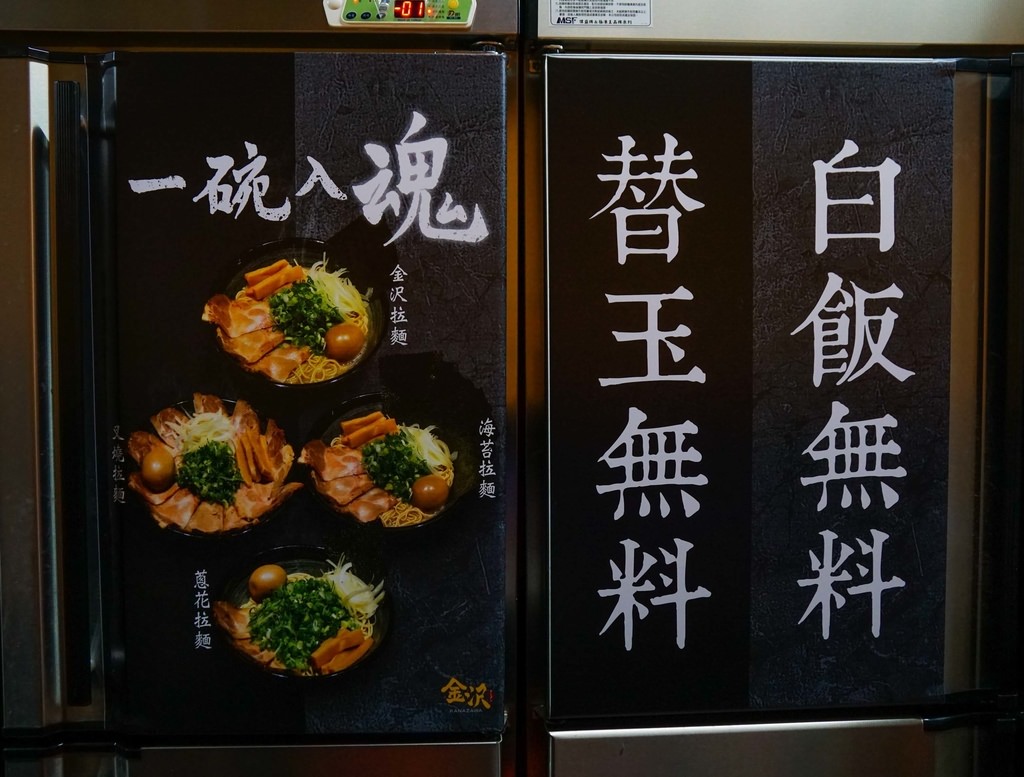 -01
MSF
一碗入魂
金沢拉麵
叉燒拉麵
海苔拉麵
蔥花拉麵
金沢
KANAZAWA
白飯無料
替玉無料